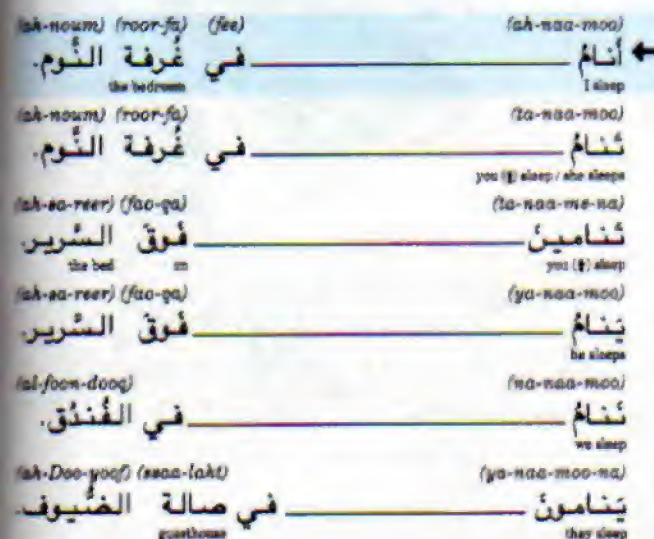 (ah-noum) (roor-fa) (fee) (ah-naa-moo)
أَنامُ ______ في غُرفة النَّوم.
the bedroom I sleep
(ah-noum) (roor-fa) (ta-naa-moo)
تَنامُ ______ في غُرفة النَّوم.
you ( ) sleep / she sleeps
(ah-sa-reer) (fao-qa) (ta-naa-me-na)
تَنامينَ ______ فَوقَ السَّرير.
the bed on you ( ) sleep
(ah-sa-reer) (fao-qa) (ya-naa-moo)
يَنامُ ______ فَوقَ السَّرير.
he sleeps
(al-foon-dooq) (na-naa-moo)
نَنامُ ______ في الفُندُق.
we sleep
(ah-Doo-yoof) (saaa-laht) (ya-naa-moo-na)
يَنامونَ ______ في صالة الضُّيوف.
guesthouse they sleep